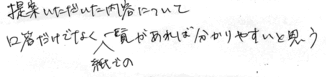 提案いただいた内容について
口答だけでなく紙での一覧があれば分かりやすいと思う